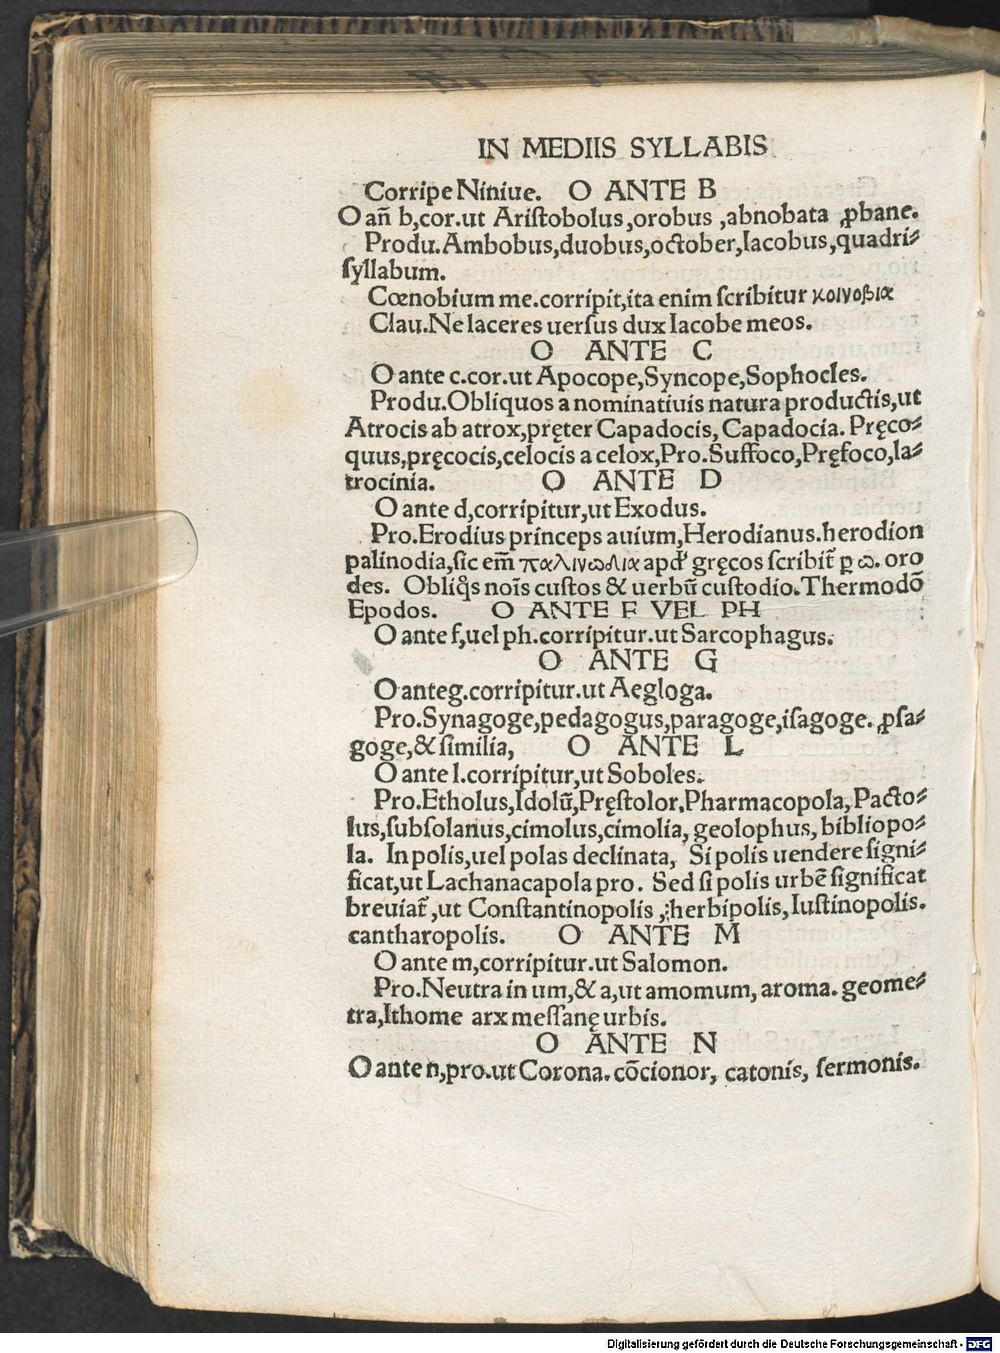 IN MEDIIS SYLLABIS
Corripe Niniue. O ANTE B
O añ b,cor.ut Aristobolus,orobus ,abnobata ꝓbane.
Produ.Ambobus,duobus,october,Iacobus,quadri⸗
syllabum.
Cœnobium me.corripit,ita enim scribitur κοινοβια
Clau.Ne laceres uersus dux Iacobe meos.
O ANTE C
O ante c.cor.ut Apocope,Syncope,Sophocles.
Produ.Obliquos a nominatiuis natura productis,ut
Atrocis ab atrox,pręter Capadocis, Capadocia. Pręco⸗
quus,pręcocis,celocis a celox,Pro.Suffoco,Pręfoco,la⸗
trocinia. O ANTE D
O ante d,corripitur,ut Exodus.
Pro.Erodius princeps auium,Herodianus.herodion
palinodia,sic em̄ παλινωδια apd' gręcos scribit̄ ꝑ ω. oro
des. Obliq̄s nois custos & uerbū custodio.Thermodō
Epodos. O ANTE F VEL PH
O ante f,uel ph.corripitur.ut Sarcophagus.
O ANTE G
O anteg.corripitur.ut Aegloga.
Pro.Synagoge,pedagogus,paragoge,isagoge.ꝓsa⸗
goge,& similia, O ANTE L
O ante l.corripitur,ut Soboles.
Pro.Etholus,Idolū,Pręstolor,Pharmacopola,Pacto⸗
lus,subsolanus,cimolus,cimolia, geolophus, bibliopo⸗
la. In polis,uel polas declinata, Si polis uendere signi⸗
ficat,ut Lachanacapola pro. Sed si polis urbē significat
breuiat̄,ut Constantinopolis ,herbipolis,Iustinopolis.
cantharopolis. O ANTE M
O ante m,corripitur.ut Salomon.
Pro.Neutra in um,& a,ut amomum, aroma. geome⸗
tra,Ithome arx messanę urbis.
O ANTE N
O ante n,pro.ut Corona.cōcionor, catonis, sermonis.
Digitalisierung gefördert durch die Deutsche Forschungsgemeinschaft - DFG